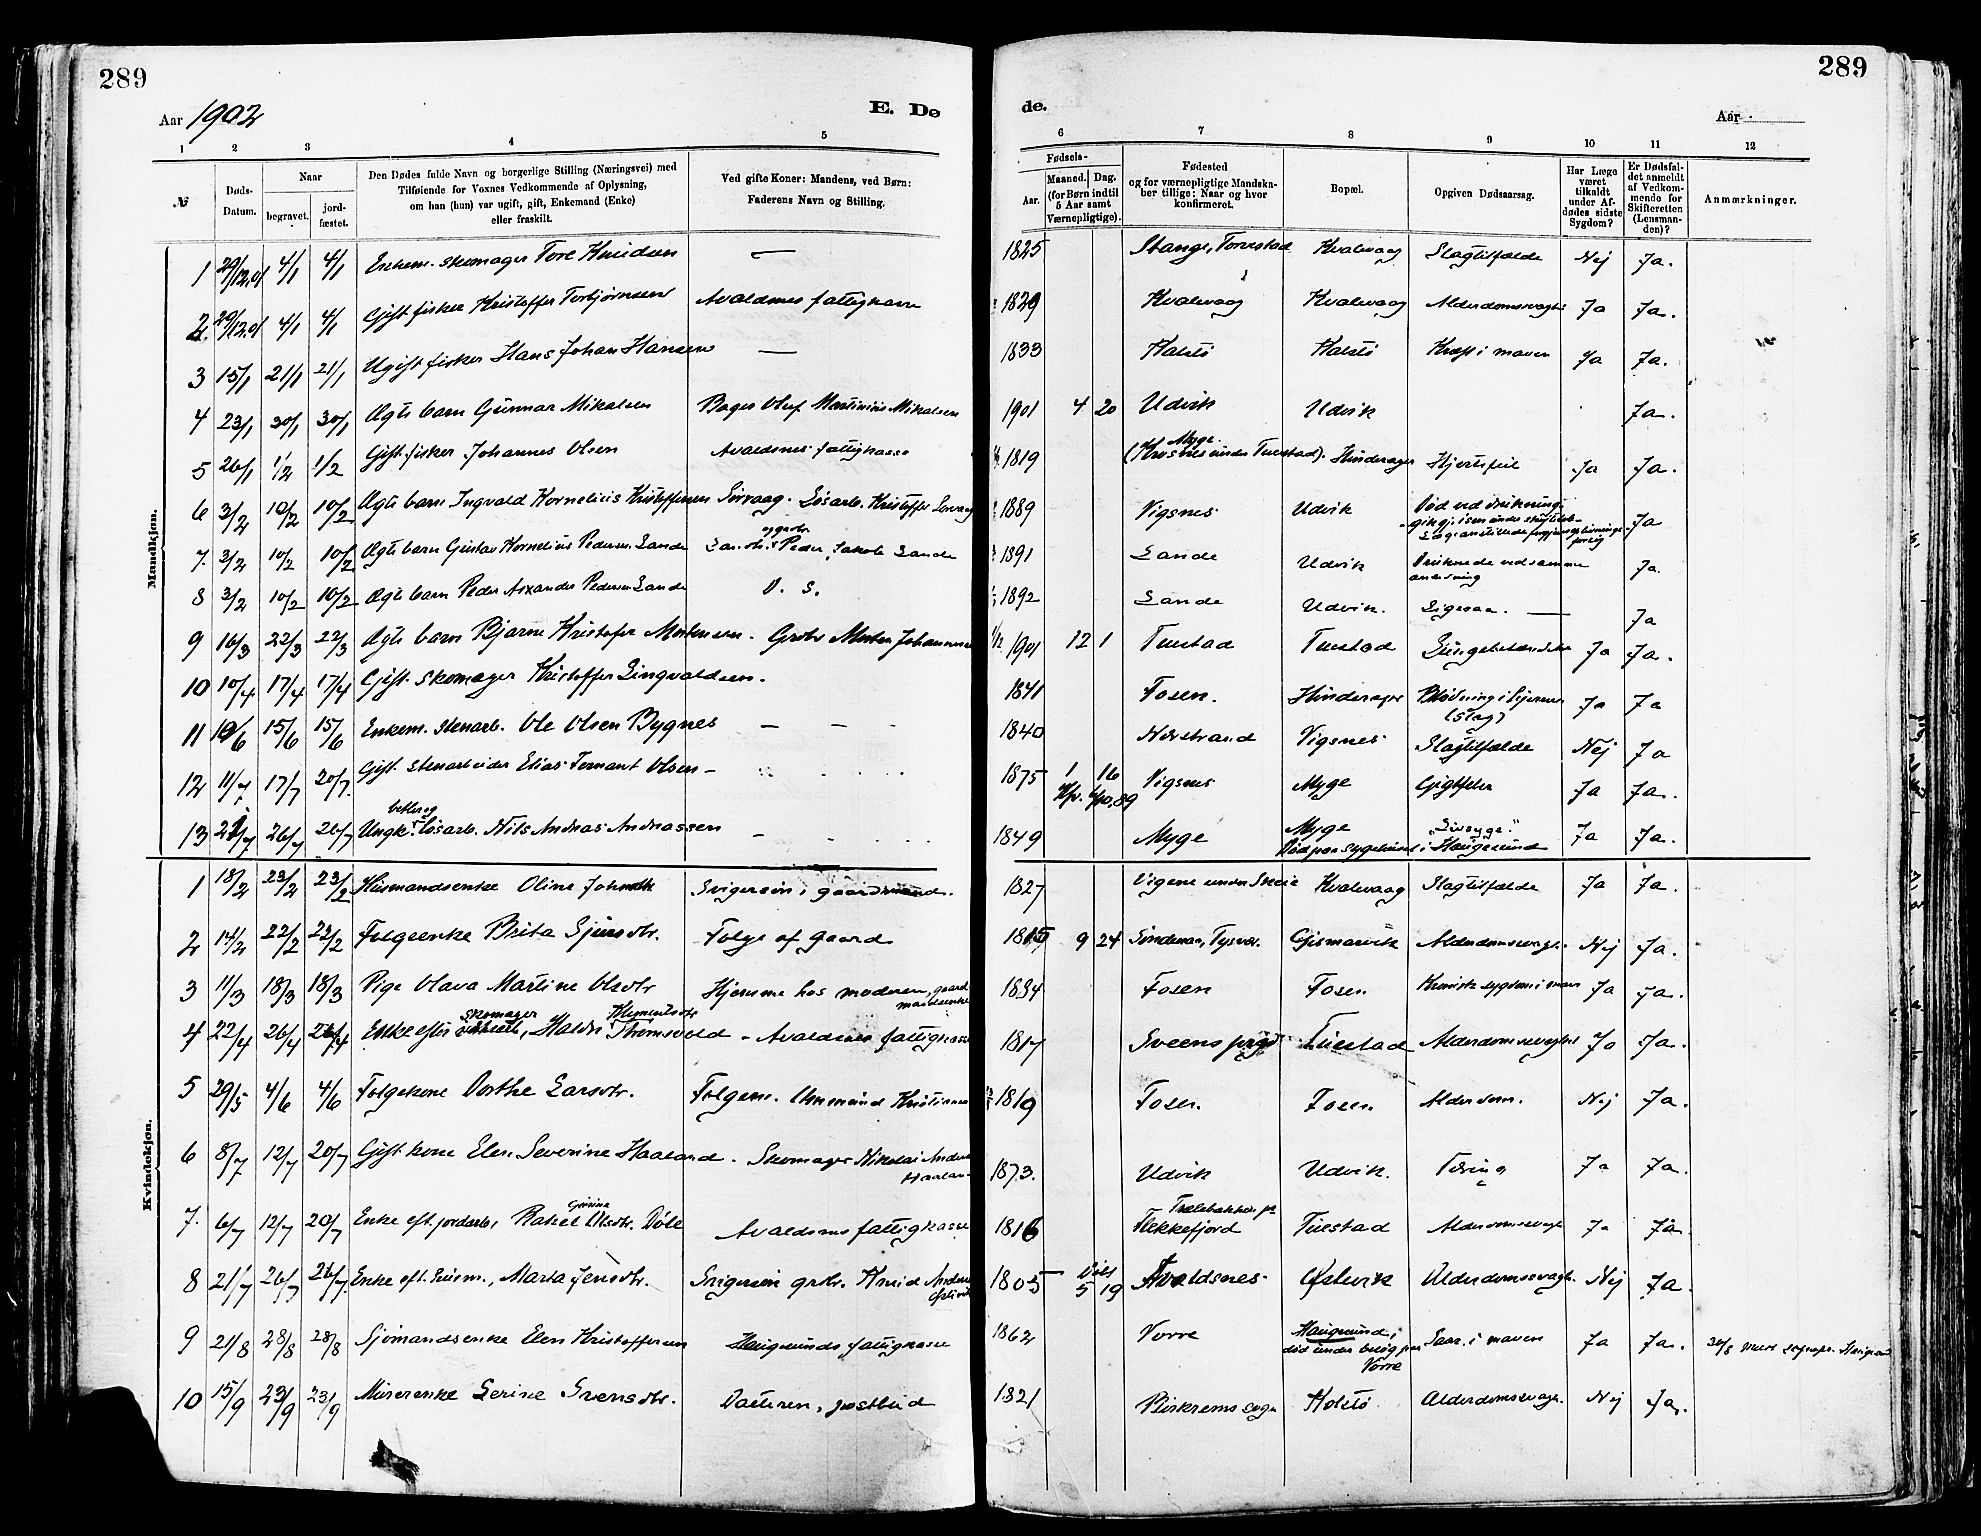 289
289
Aar 1902
E. Dø
de.
Aar
1 2 3 4 5 6 7 8 9 10 11 12
№
Døds-Datum.
Naar
begravet.
jord-fæstet.
Den Dødes fulde Navn og borgerlige Stilling (Næringsvei) med
Tilføiende for Voxnes Vedkommende af Oplysning,
om han (hun) var ugift, gift, Enkemand (Enke)
eller fraskilt.
Ved gifte Koner: Mandens, ved Børn:
Faderens Navn og Stilling.
Fødsels-
Aar.
Maaned. Dag.
(for Børn indtil
5 Aar samt
Værnepligtige).
Fødested
og for værnepligtige Mandska-
ber tillige: Naar og hvor
konfirmeret.
Bopæl.
Opgiven Dødsaarsag.
Har Læge
været
tilkaldt
under Af-
dødes sidste
Sygdom?
Er Dødsfal-
det anmeldt
af Vedkom-
mende for
Skifteretten
(Lensman-
den)?
Anmærkninger.
Mandkjøn.
1 29/12.01 4/1 4/1 Enkem. skomager Tore Knudsen — 1825 Stange, Torvestad Kvalevaag Slagtilfælde Nej Ja.
2. 29/12.01 4/1 4/1 Gift fisker Kristoffer Torbjørnsen Avaldsnes fattigkasse 1829 Kvalevaag Kvalevaag Alderdomssvagh. Ja Ja.
3 15/1 21/1 21/1 Ugift fisker Hans Johan Hansen — 1833 Kolstø Kolstø Kræft i maven Ja Ja.
4 23/1 30/1 30/1 Ægte barn Gunnar Mikalsen Bager Oluf Martinius Mikalsen 1901 4 20 Udvik Udvik Ja.
5 26/1 1/2 1/2 Gift fisker Johannes Olsen Avaldsnes fattigkasse 1819 Myge. (Krosnes under Tuestad). Hinderager Hjertefeil Ja Ja.
6 3/2 10/2 10/2 Ægte barn Ingvald Kornelius Kristoffersen Sørvaag. Løsarb. Kristoffer Sørvaag 1889 Vigsnes Udvik Død ved drukning. gik gj. isen under Ja
7. 3/2 10/2 10/2 Ægte barn Gustav Kornelius Pedersen Sande Peder Jakob Sande 1891 Sande Udvik Druknede ved samme anledning Ja.
8 3/2 10/2 10/2 Ægte barn Peder Pedersen Sande D. S. 1892 Sande Udvik. Ligesaa. — Ja
9 16/3 22/3 22/3 Ægte barn Bjarne Kristofer Mortensen. Grbr. Morten Johannesen 1901 12 1 Tuestad Tuestad Lungebetændelse Ja Ja.
10 10/4 17/4 17/4 Gift skomager Kristoffer Singvaldsen. 1841 Fosen. Hinderager Blødning i hjernen (slag) Ja Ja
11 10/6 15/6 15/6 Enkem. stenarb. Ole Olsen Bygnes — 1840 Nerstrand Vigsnes Slagtilfælde Nej Ja
12 11/7 17/7 20/7. Gift stenarbeider Elias Olsen — 1875 1 16 Vigsnes Myge Gigtfeber Ja Ja.
13 21/7 26/7 26/7 Ungk. løsarb. Nils Andreas Andreassen — 1849 Myge Myge Død paa sygehuset i Haugesund Ja Ja.
Kvindekjøn.
1 18/2 23/2 23/2 Husmandsenke Oline Svigersøn i gaardmand. 1827 Vigene under Skeie Kvalevaag Slagtilfælde Ja Ja.
2 14/2 22/2 22/2 Folgeenke Brita Sjursdtr. Folge af gaard 1815 9 24 Tysvær. Gismarvik Alderdomssvagh. Nej Ja.
3 11/3 18/3 18/3 Pige Olava Martine Olsdtr Hjemme hos moderen, gaardmandsenke 1834 Fosen Fosen Kronisk sygdom i maven Ja Ja.
4 22/4 26/4 26/4 Enke efter skomager Klementsdtr Avaldsnes fattigkasse 1817 Sveens prgd Tuestad Alderdomssvaghed Ja Ja.
5 29/5 4/6 4/6 Folgekone Dorthe Larsdtr. Folgem. Ommund Kristiansen 1819 Fosen. Fosen Alderdom. Nej Ja.
6 8/7 12/7 20/7 Gift kone Elen Severine Haaland. Skomager Nikolai Andreas Haaland 1873. Udvik Udvik. Tæring Ja Ja.
7. 6/7 12/7 20/7 Enke eft. jordarb. Rakel Olsdtr. Døle Avaldsnes fattigkasse 1816 Flekkefjord Tuestad Alderdomssvagh Ja Ja.
8 21/7 26/7 26/7. Enke eft. husm., Marta Jensdtr. Svigersøn grbr. Knud 1805 5 19 Avaldsnes. Østvik Alderdomssvagh. Nej Ja.
9 21/8 28/8 28/8 Sjømandsenke Elen Kristoffersen Haugesunds fattigkasse 1862 Vorre Haugesund, død under besøg paa Vorre Saar i maven Ja Ja.
10 15/9 23/9 23/9 Murerenke Serine Svensdtr. Datteren, postbud 1821 Bjerkrems sogn Kolstø Alderdomssvagh. Nej Ja.